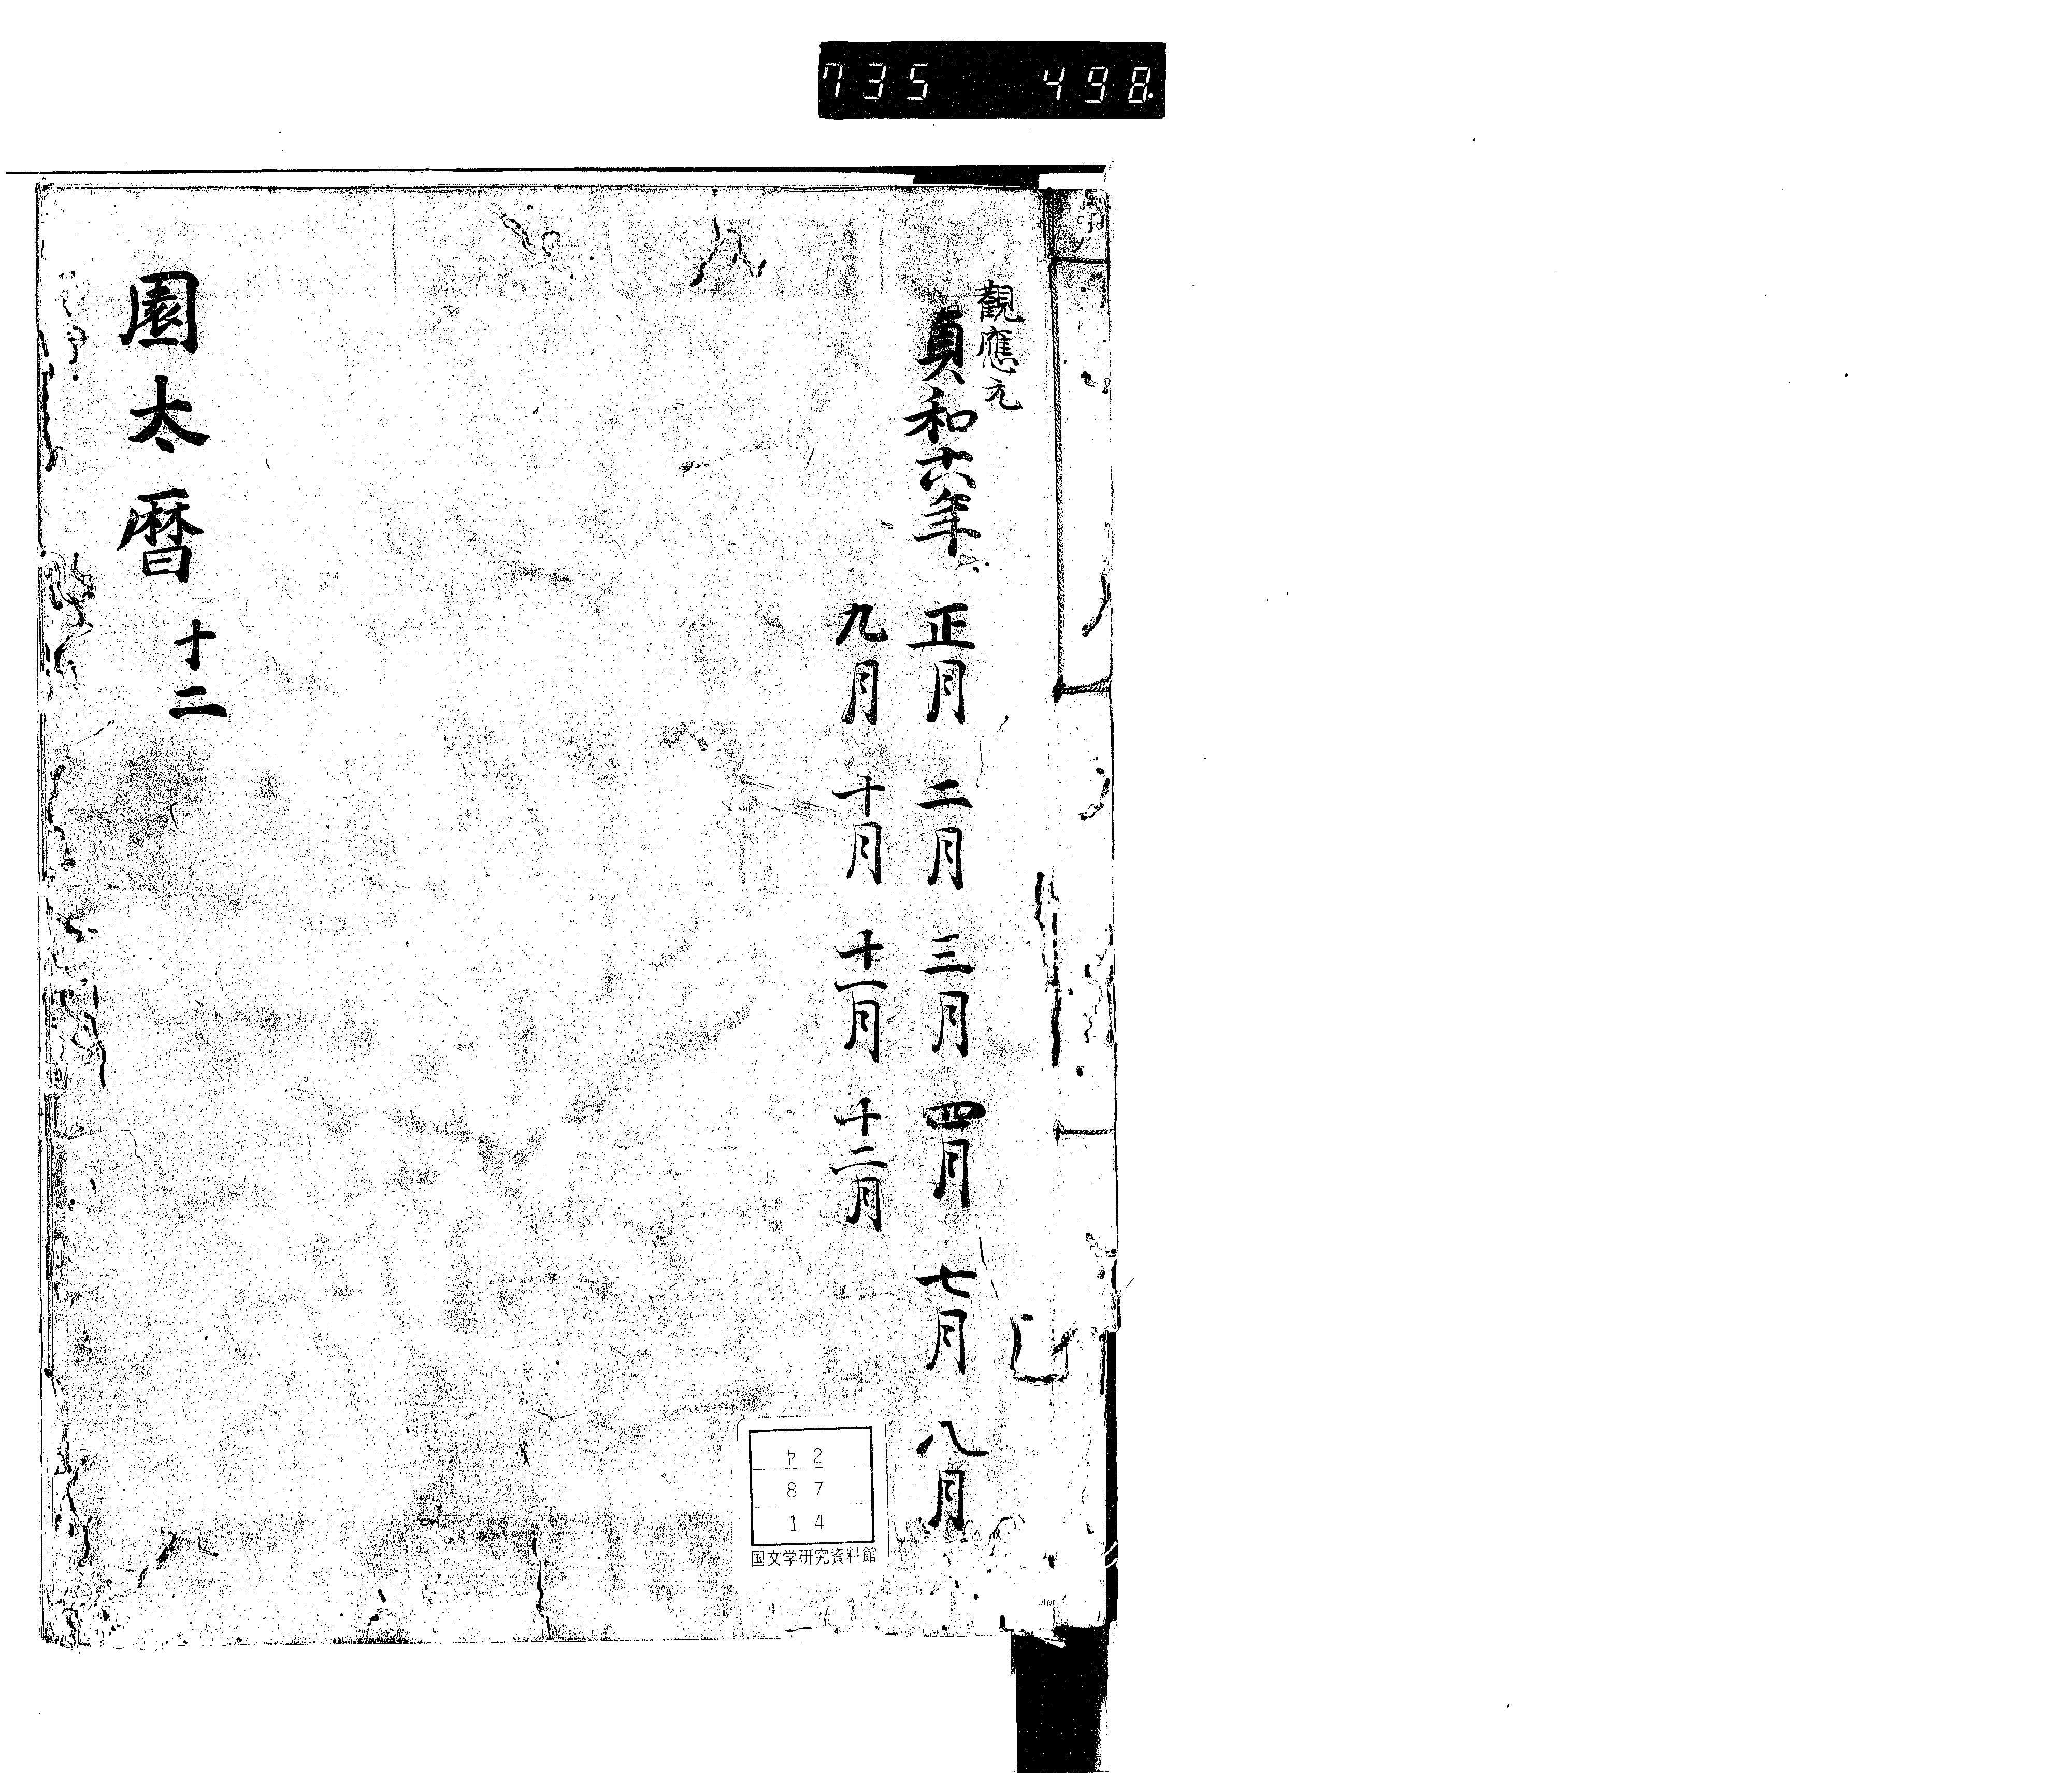 735 498
觀應元
貞和六年 正月 二月 三月 四月 七月 八月
九月 十月 十一月 十二月
園太暦 十二
ヤ2
87
14
国文学研究資料館